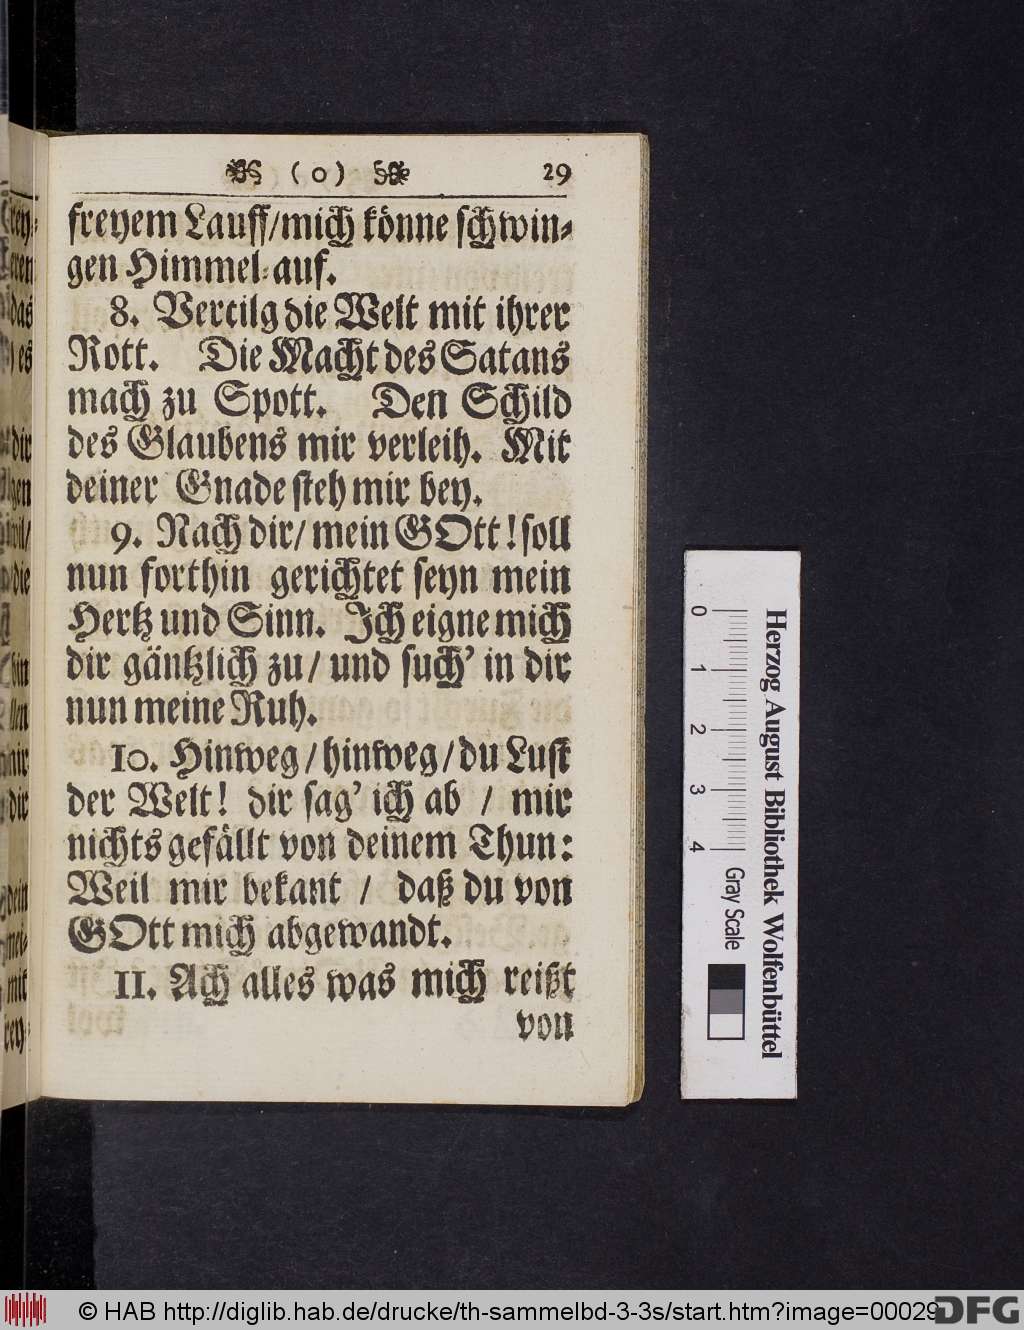 ( o ) 29
freyem Lauff/mich könne schwin-
gen Himmel-auf.
8. Vertilg die Welt mit ihrer
Rott. Die Macht des Satans
mach zu Spott. Den Schild
des Glaubens mir verleih. Mit
deiner Gnade steh mir bey.
9. Nach dir/ mein GOtt! soll
nun forthin gerichtet seyn mein
Hertz und Sinn. Ich eigne mich
dir gäntzlich zu/ und such' in dir
nun meine Ruh.
10. Hinweg/hinweg/du Lust
der Welt! dir sag' ich ab / mir
nichts gefällt von deinem Thun:
Weil mir bekant / daß du von
GOtt mich abgewandt.
11. Ach alles was mich reißt
von
das
es
dir
gen
die
bin
dir
dein
mit
0 1 2 3 4
Gray Scale
Herzog August Bibliothek Wolfenbüttel
© HAB http://diglib.hab.de/drucke/th-sammelbd-3-3s/start.htm?image=00029
DFG